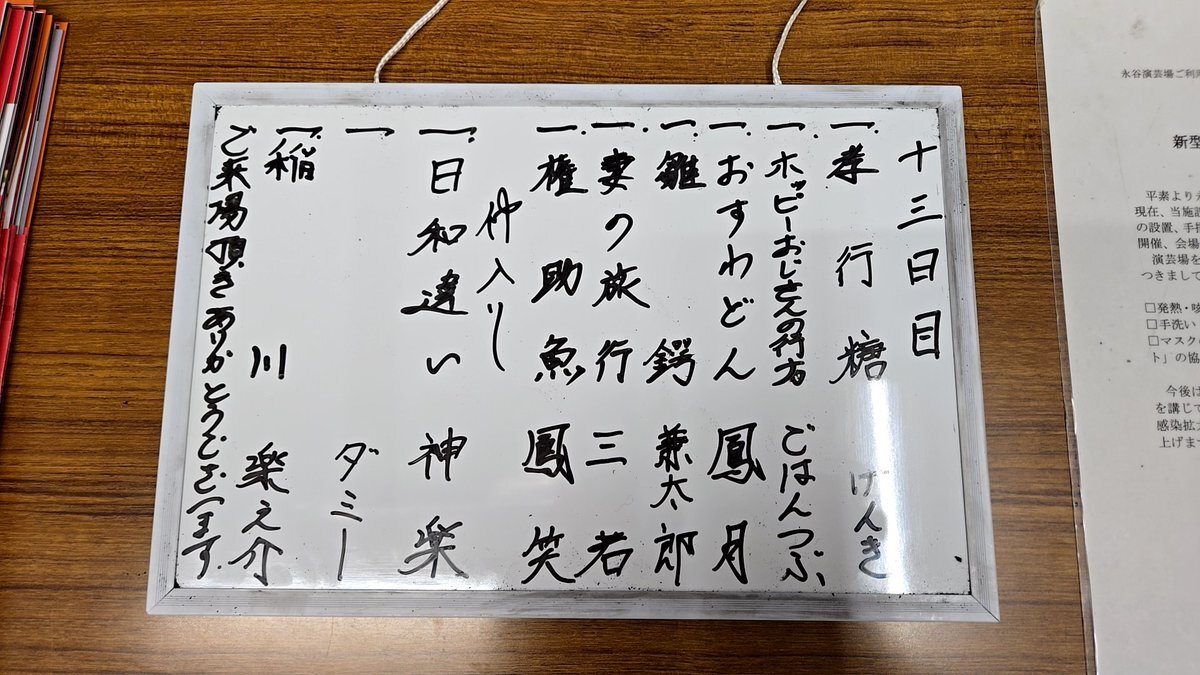 十三日目
一. 孝行糖 げんき
一. ホッピーおじさんの行方 ごはんつぶ
一. おすわどん 鳳月
一. 雛鍔 兼太郎
一. 妻の旅行 三若
一. 権助魚 鳳笑
仲入り
一. 日和違い 神楽
一 ダミー
一. 稲川 楽之介
ご来場頂きありがとうございます
永谷演芸場ご利用
新型
平素より永
現在、当施設
の設置、手指
開催、会場
演芸場を
つきまして
□発熱・咳
□手洗い
□マスクの
ト」の協
今後は
を講じて
感染拡大
上げます